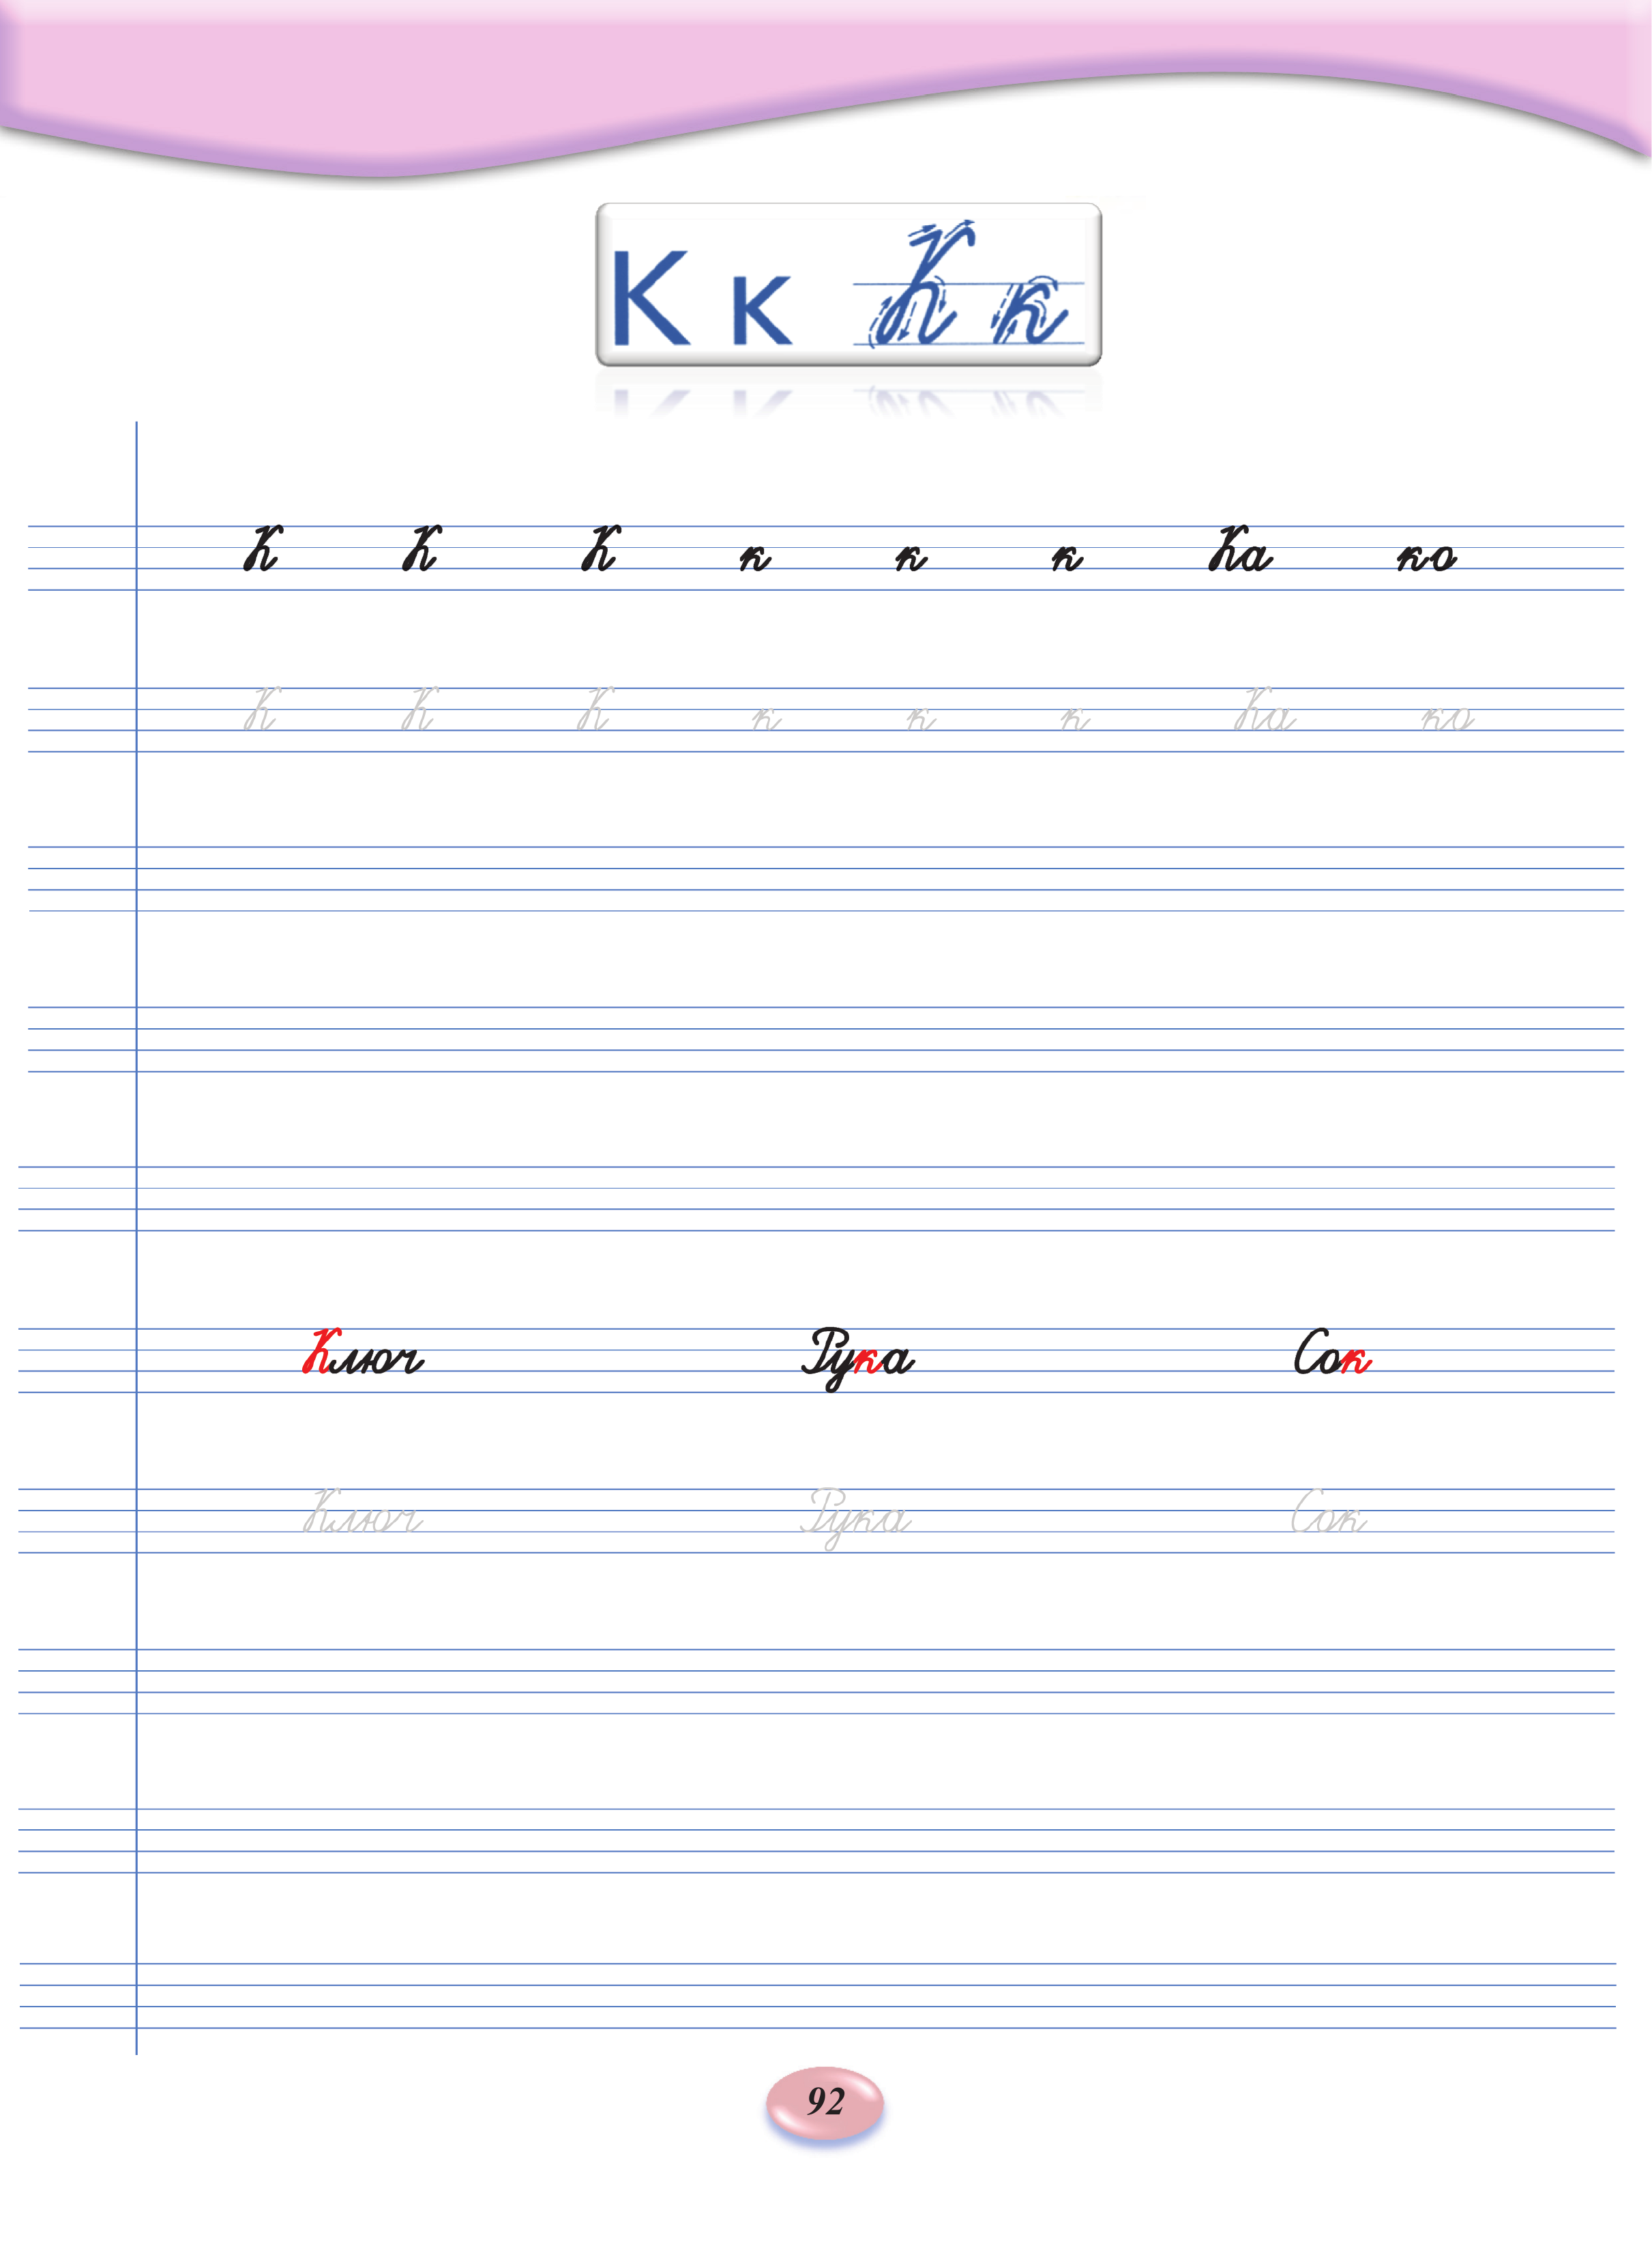 К к К к
К К К к к к Ка ко
К К К к к к Ка ко
Ключ Рука Сок
Ключ Рука Сок
92